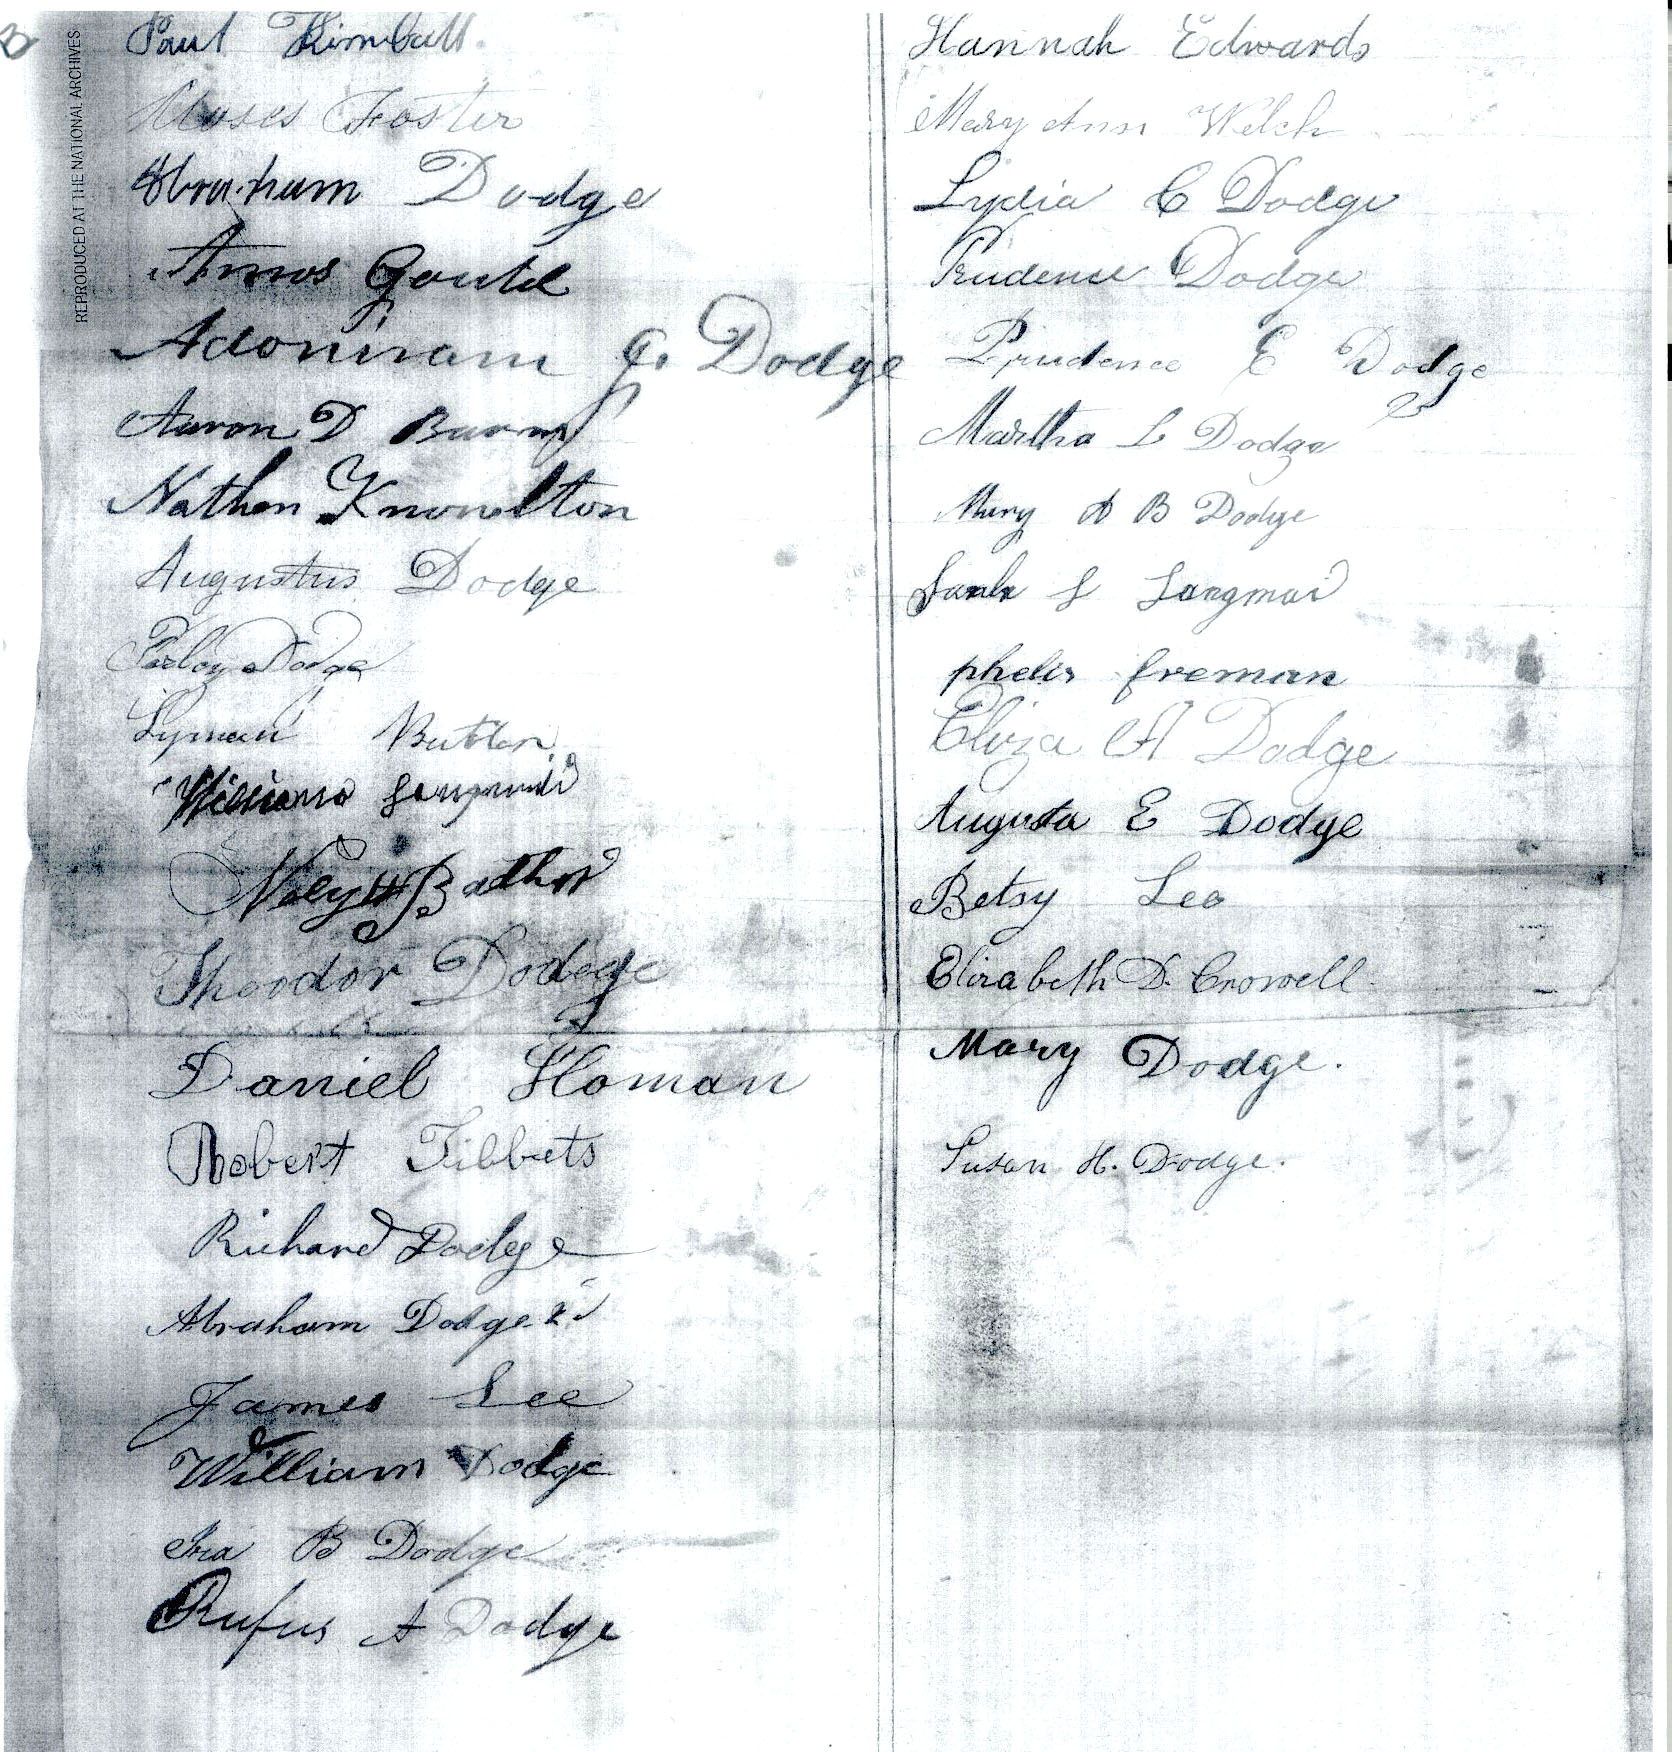 REPRODUCED AT THE NATIONAL ARCHIVES
Paul Kimball.
Moses Foster
Abraham Dodge
Amos Gould
Adoniram J. Dodge
Aaron D Burn
Nathan Knowlton
Augustus Dodge
Parley Dodge
Lyman Butler
William Langmaid
Theodor Dodge
Daniel Homan
Robert Tibbets
Richard Dodge
Abraham Dodge 2d
James Lee
William Dodge
Ira B Dodge
Rufus A Dodge
Hannah Edwards
Mary Ann Welch
Lydia C Dodge
Prudence Dodge
Prudence E Dodge
Martha L Dodge
2
Mary A B Dodge
Sarah S Langmai
phelis freman
Eliza A Dodge
Augusta E Dodge
Betsy Lee
Elizabeth D. Crowell.
Mary Dodge.
Susan H. Dodge.